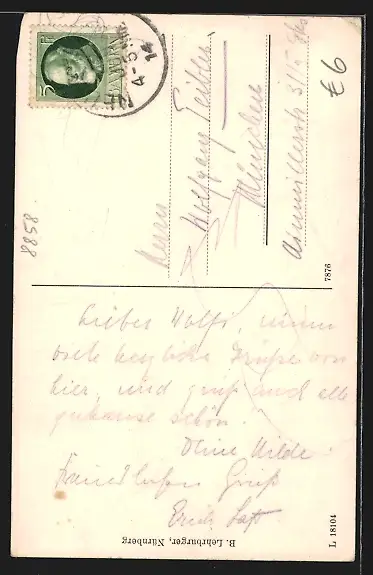 8858
€6
5
4-5
14
Herrn
Wolfgang
München
7876
Liebes Wolfi, nimm
viele herzliche Grüße von
hier und grüß auch alle
zuhause schön.
Deine Hilde
Freundlichen Gruß
Erich
B. Lehrburger, Nürnberg
L 18104